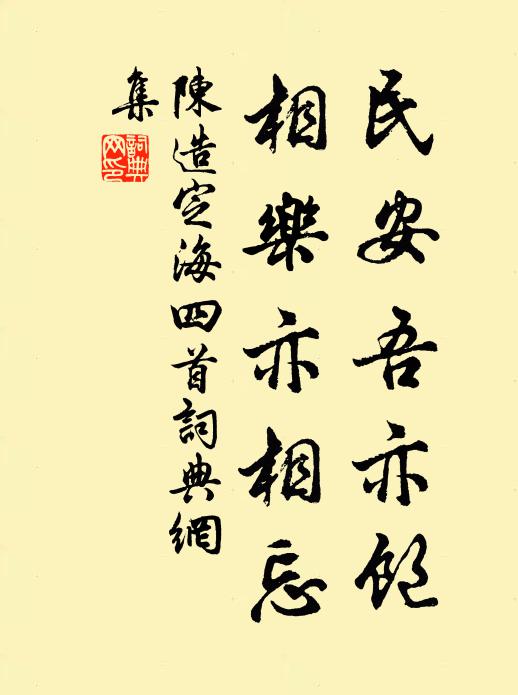 民安吾亦飽
相樂亦相忘
陳造定海四首詞典網
集
詞典
网印